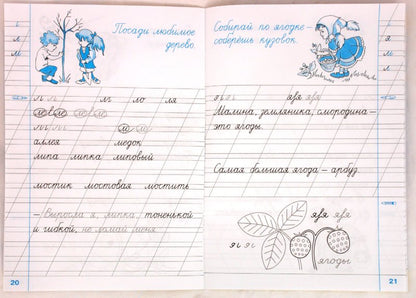 Посади любимое
дерево.
л л м ло ля
аллея медок
липа липка липовый
мостик мостовая мостить
– Выросла я, липка, тоненькой
и гибкой, не ломай меня.
20
Собирай по ягодке –
соберёшь кузовок.
яяя яяя
Малина, земляника, смородина –
это ягоды.
Самая большая ягода – арбуз.
яя яя
ягоды
21